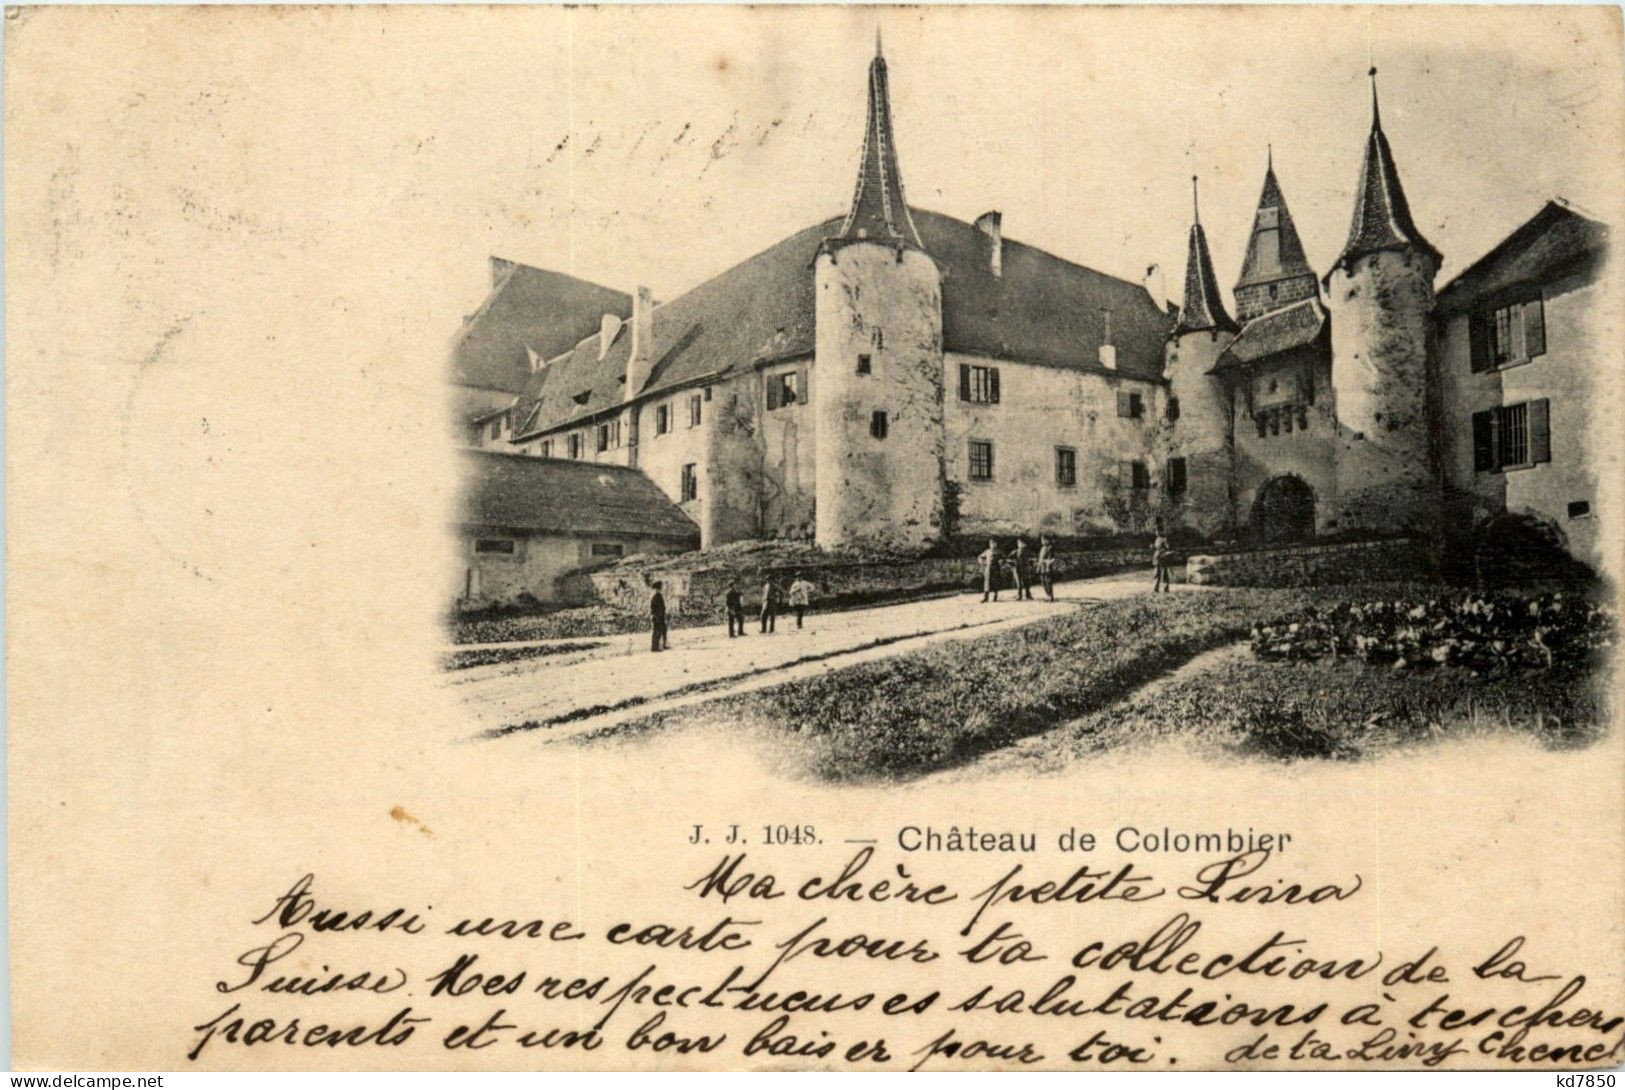 J. J. 1048. — Château de Colombier
Ma chère petite Lina
Aussi une carte pour ta collection de la
Suisse. Mes respectueuses salutations à tes chers
parents et un bon baiser pour toi. de ta
kd7850